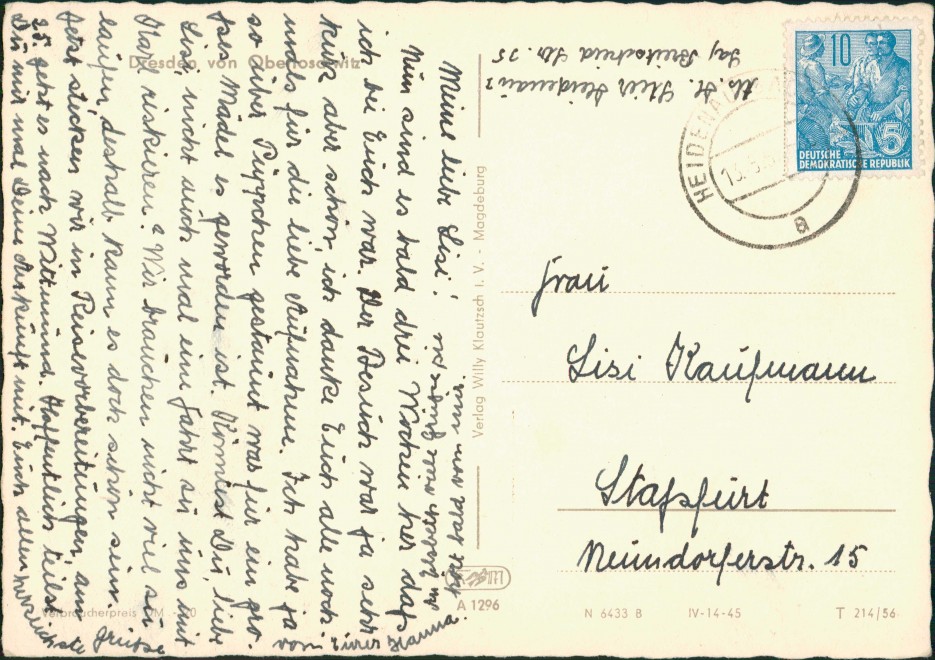 Dresden von Oberloschwitz
Meine liebe Lisi!
Nun sind es bald drei Wochen her daß
ich bei Euch war. Der Besuch war ja sehr
kurz aber schön, ich danke Euch alle noch
mals für die liebe Aufnahme. Ich habe ja
so über Püppchen gestaunt was für ein gro
ßes Mädel es geworden ist. Könntest Du, liebe
Lisi, nicht auch mal eine Fahrt zu uns mit
Karl riskieren? Wir brauchen nicht viel zu
laufen, deshalb kann es doch schön sein.
Jetzt stecken wir in Reisevorbereitungen, am
25. geht es nach Wittmund. Hoffentlich teilst
Du mir mal Deine Ankunft mit. Euch allen herzlichste Grüsse
von Eurer Hanna.
Verbraucherpreis DM
Verlag Willy Klautzsch i. V. - Magdeburg
A 1296
Heidenau
Breitscheid Str. 35
10
5
DEUTSCHE
DEMOKRATISCHE REPUBLIK
HEIDENAU
a
Frau
Lisi Kaufmann
Stassfurt
Neundorferstr. 15
N 6433 B IV-14-45 T 214/56